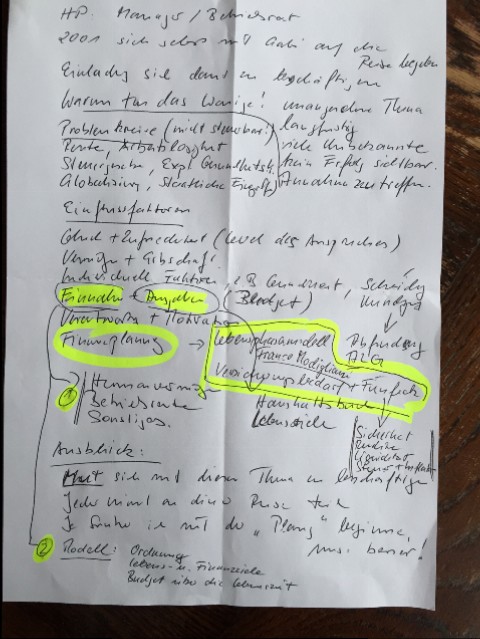 HP. Manager / Betriebsrat
2001 sich selbst mit Gabi auf die
Reise begeben
Einladung sich damit zu beschäftigen
Warum tun das Wenige! unangenehme Thema
Problemkreise (nicht steuerbar!) langfristig
Rente, Arbeitslosigkeit viele Unbekannte
Steuer, Expl. Gesundheitsk. kein Erfolg sichtbar.
Globalisierung, Staatliche Eingriffe Annahmen zu treffen.
Einflussfaktoren
Glück + Zufriedenheit (Level des Anspruches)
Vermögen + Erbschaft
Individuelle Faktoren, z.B. Gesundheit, Scheidung
Einnahmen + Ausgaben (Budget) Kündigung
Verantwortung + Motivation
Finanzplanung → Lebensphasenmodell Abfindung
Franco Modigliani ALG
Versicherungsbedarf +
① Humanvermögen Haushaltsbuch
Betriebsrente Lebensziele
Sonstiges. Sicherheit
Rendite
Liquidität
Steuer + Inflation
Ausblick:
Mut sich mit diesem Thema zu beschäftigen
Jeder nimmt an dieser Reise teil
Je früher ich mit der „Planung" beginne,
umso besser!
② Modell: Ordnung
Lebens- u. Finanzziele
Budget über die Lebenszeit